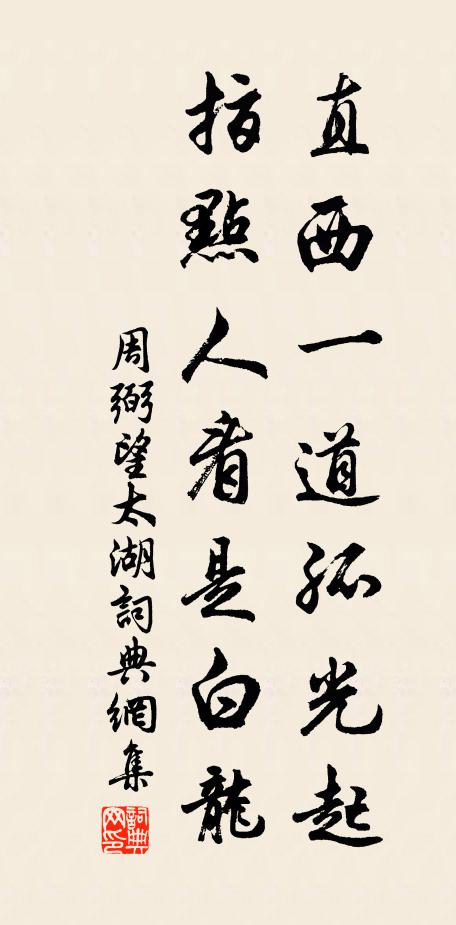 直西一道孤光起
指點人看是白龍
周弼望太湖詞典網集
詞典網印